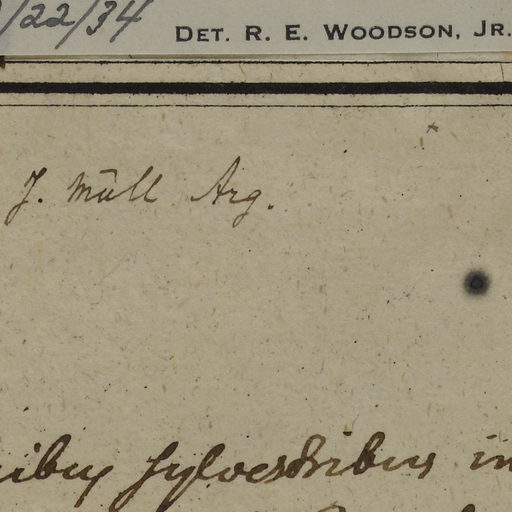 /22/34
DET. R. E. WOODSON, JR.
J. Müll Arg.
sylvestribus in